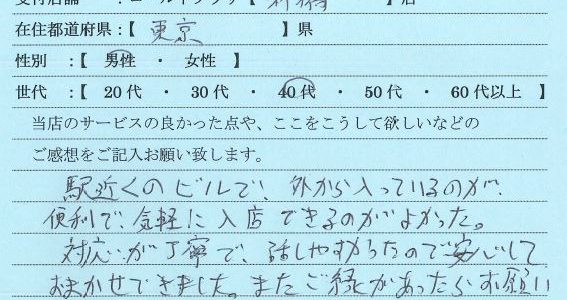 【 新橋 】店
在住都道府県：【 東京 】県
性別 ：【 男性 ・ 女性 】
世代 ：【 20代 ・ 30代 ・ 40代 ・ 50代 ・ 60代以上 】
当店のサービスの良かった点や、ここをこうして欲しいなどの
ご感想をご記入お願い致します。
駅近くのビルで、外から入っているのが、
便利で、気軽に入店できるのがよかった。
対応が丁寧で、話しやすかったので安心して
おまかせできました。またご縁があったらお願い